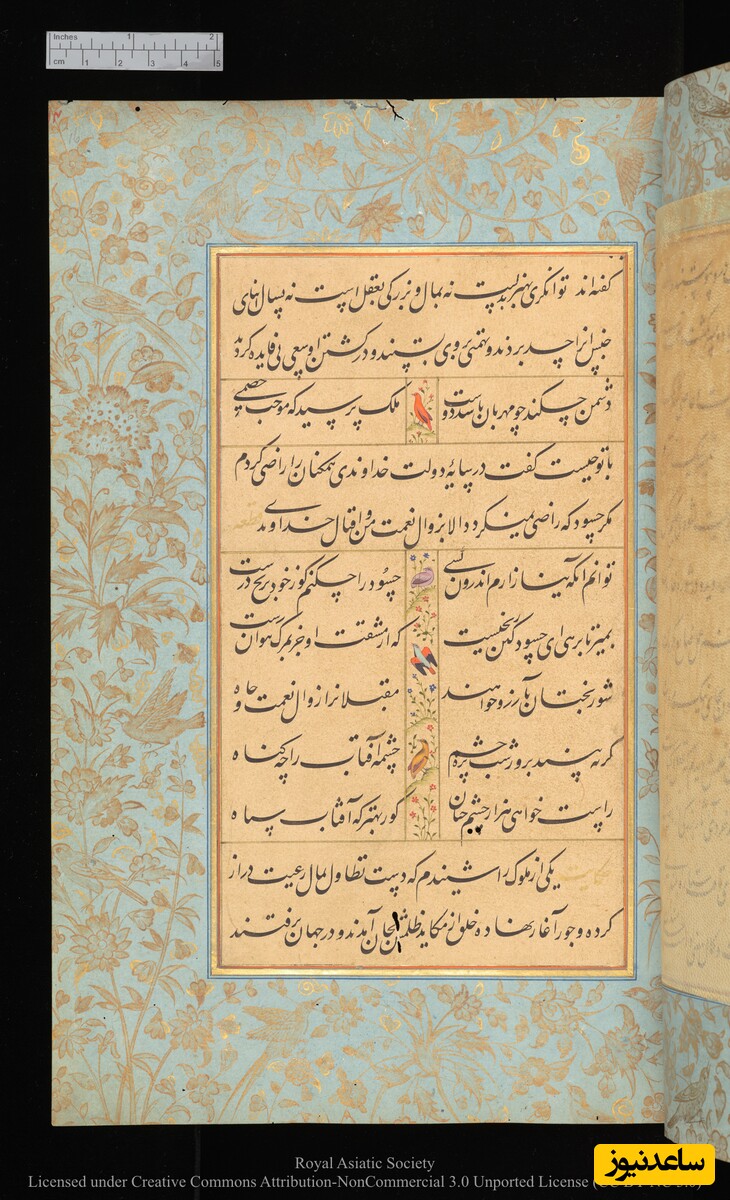 Inches 1 2
cm 1 2 3 4 5
گفته‌اند توانگری بهنر بدلست نه بمال و بزرگی بعقل است نه بسال ابنای
جنس او را حسد بردند و تهمتی بروی بستند و در کشتن او سعی بی‌فایده کردند
دشمن چکند چو مهربان باشد دوست ملک پرسید که موجب خصمی
با تو چیست گفت در سایه دولت خداوندی همکنان را راضی کردم
مگر حسود که راضی نمیگردد الا بزوال نعمت من و اقبال خداوند
توانم آنکه نیازارم اندرون کسی حسود را چکنم کو ز خود برنج درست
بمیر تا برهی ای حسود کین رنجیست که از مشقت او جز بمرگ نتوان رست
شوربختان بآرزو خواهند مقبلانرا زوال نعمت و جاه
گر نه بیند بروز شب پره چشم چشمه آفتاب را چه گناه
راست خواهی هزار چشم چنان کور بهتر که آفتاب سیاه
حکایت یکی از ملوک را شنیدم که دست تطاول بمال رعیت دراز
کرده و جور آغاز نهاده خلق از مکاید ظلمش بجان آمدند و در جهان برفتند
Royal Asiatic Society
Licensed under Creative Commons Attribution-NonCommercial 3.0 Unported License
ساعدنیوز